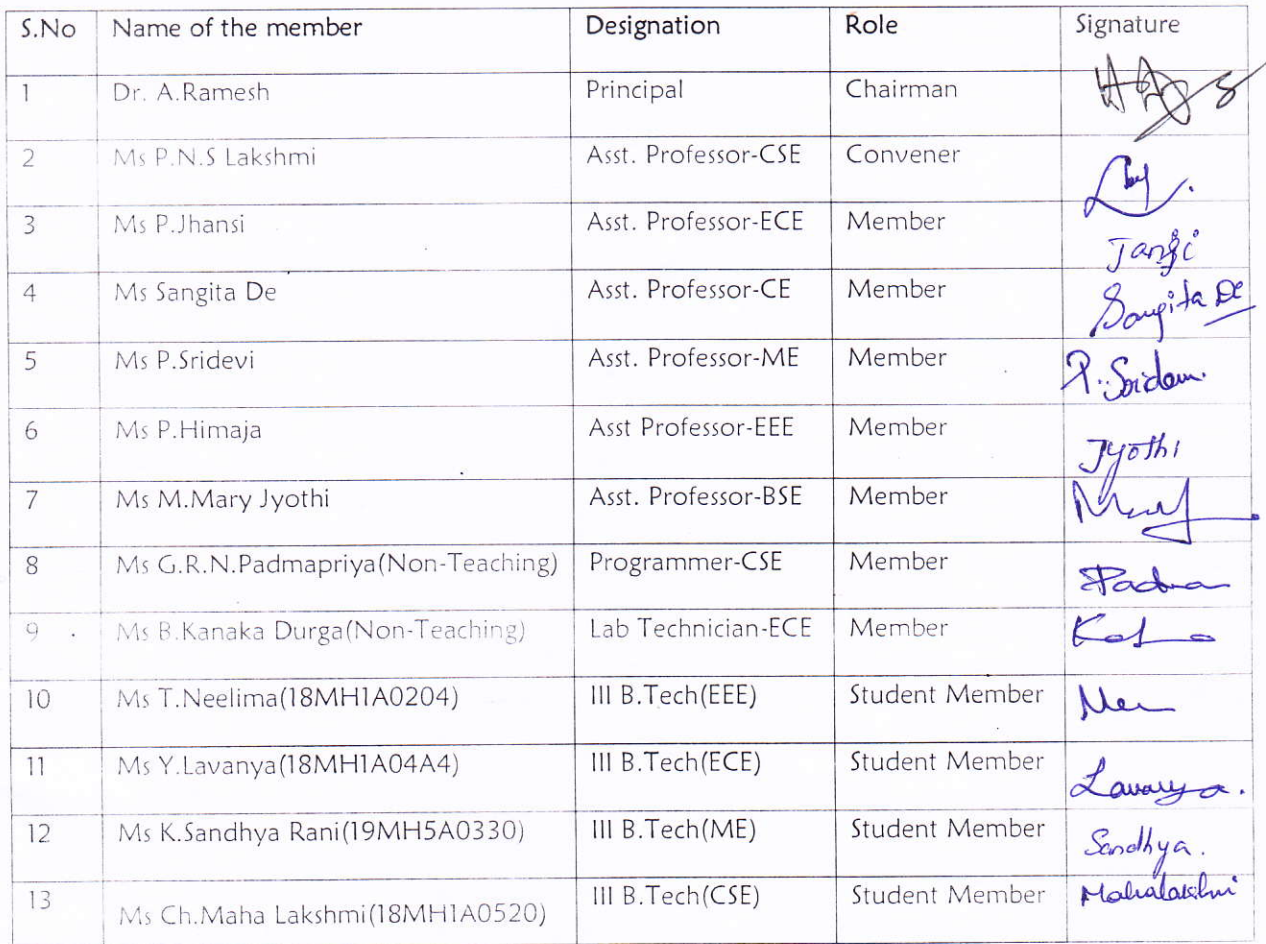 S.No Name of the member Designation Role Signature
1 Dr. A.Ramesh Principal Chairman
2 Ms P.N.S Lakshmi Asst. Professor-CSE Convener
3 Ms P.Jhansi Asst. Professor-ECE Member Jansi
4 Ms Sangita De Asst. Professor-CE Member Sangita De
5 Ms P.Sridevi Asst. Professor-ME Member
6 Ms P.Himaja Asst Professor-EEE Member Jyothi
7 Ms M.Mary Jyothi Asst. Professor-BSE Member
8 Ms G.R.N.Padmapriya(Non-Teaching) Programmer-CSE Member
9 Ms B.Kanaka Durga(Non-Teaching) Lab Technician-ECE Member
10 Ms T.Neelima(18MH1A0204) III B.Tech(EEE) Student Member
11 Ms Y.Lavanya(18MH1A04A4) III B.Tech(ECE) Student Member Lavanya.
12 Ms K.Sandhya Rani(19MH5A0330) III B.Tech(ME) Student Member Sandhya.
13 Ms Ch.Maha Lakshmi(18MH1A0520) III B.Tech(CSE) Student Member Mahalakshmi